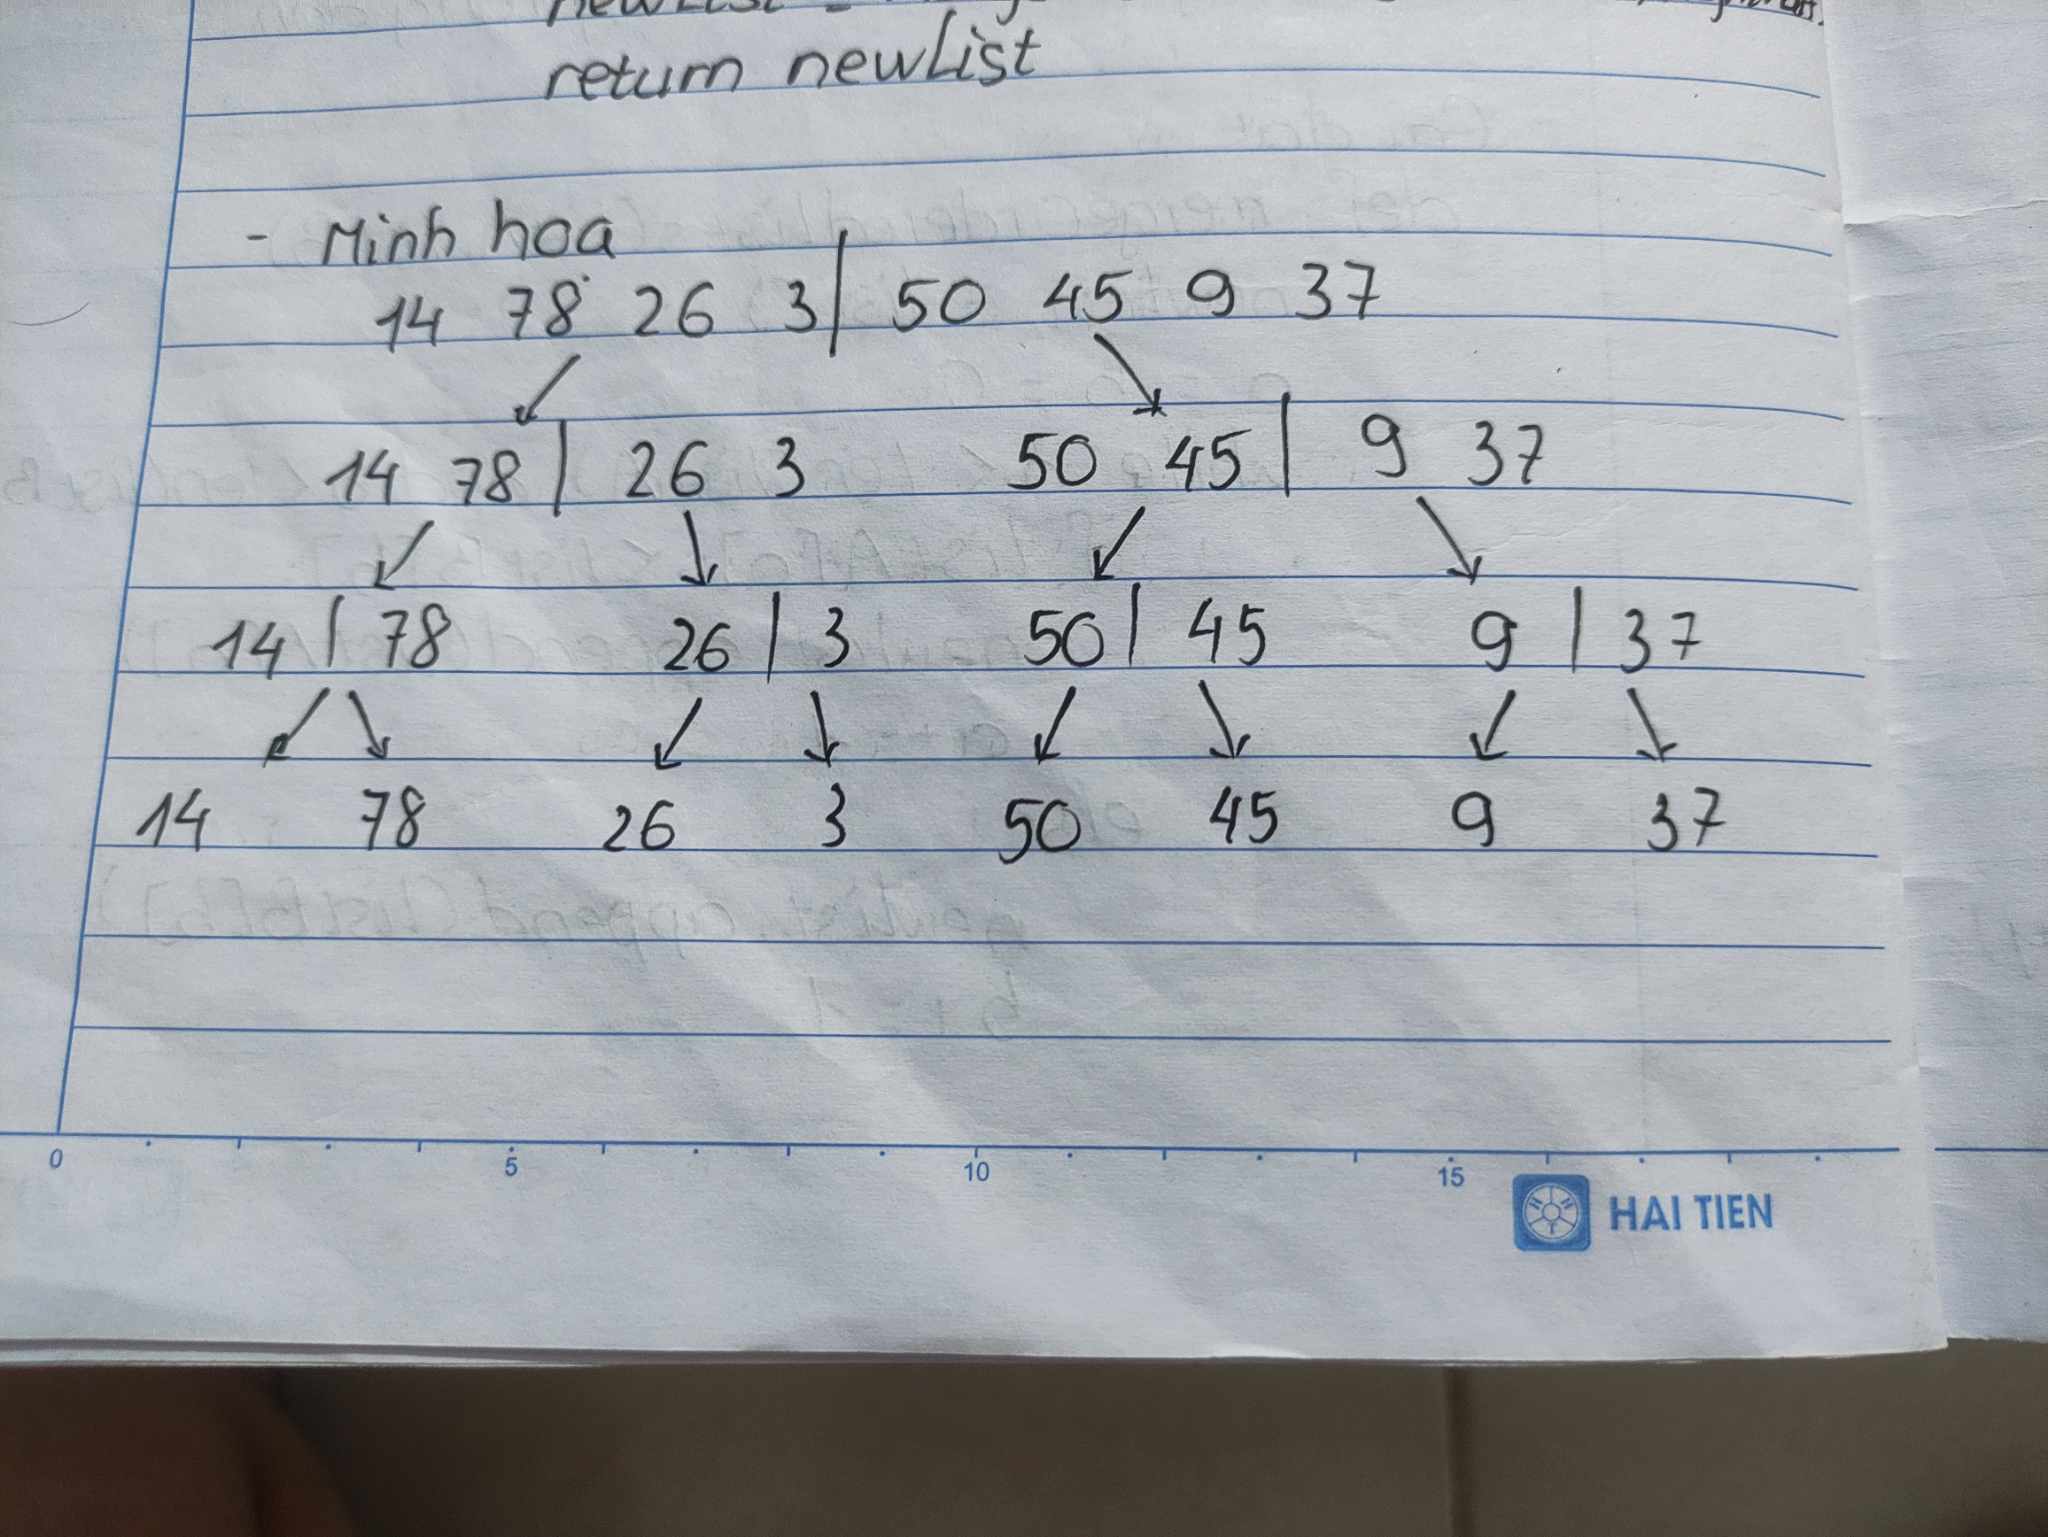 return newList
- Minh hoa
14 78 26 3 | 50 45 9 37
14 78 | 26 3 50 45 | 9 37
14 | 78 26 | 3 50 | 45 9 | 37
14 78 26 3 50 45 9 37
0 5 10 15
HAI TIEN